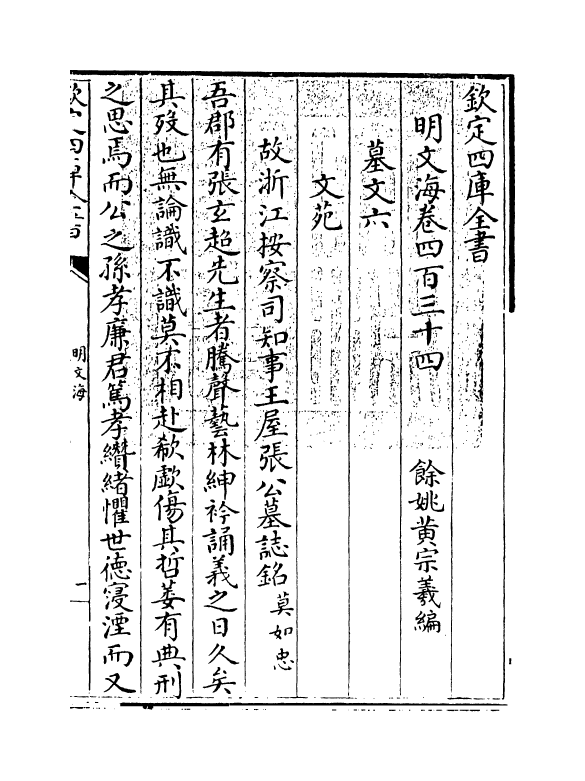 欽定四庫全書
明文海卷四百三十四　餘姚黃宗羲編
墓文六
文苑
故浙江按察司知事王屋張公墓誌銘 莫如忠
吾郡有張玄超先生者騰聲藝林紳衿誦義之日久矣
其歿也無論識不識莫不相赴欷歔傷其哲萎有典刑
之思焉而公之孫孝廉君篤孝纘緒懼世徳寖湮而又
明文海